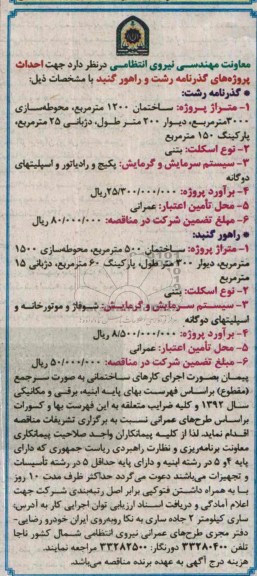 معاونت مهندسی نیروی انتظامی درنظر دارد جهت احداث
پروژه‌های گذرنامه رشت و راهور گنبد با مشخصات ذیل:
* گذرنامه رشت:
۱- متراژ پروژه: ساختمان ۱۲۰۰ مترمربع، محوطه‌سازی
۳۰۰۰مترمربع، دیوار ۲۰۰ متر طول، دژبانی ۲۵ مترمربع،
پارکینگ ۱۵۰ مترمربع
۲- نوع اسکلت: بتنی
۳- سیستم سرمایش و گرمایش: پکیج و رادیاتور و اسپلیتهای
دوگانه
۴- برآورد پروژه: ۲۵/۳۰۰/۰۰۰/۰۰۰ریال
۵- محل تأمین اعتبار: عمرانی
۶- مبلغ تضمین شرکت در مناقصه: ۸۰/۰۰۰/۰۰۰ ریال
* راهور گنبد:
۱- متراژ پروژه: ساختمان ۵۰۰ مترمربع، محوطه‌سازی ۱۵۰۰
مترمربع، دیوار ۳۰۰ متر طول، پارکینگ ۶۰ مترمربع، دژبانی ۱۵
مترمربع
۲- نوع اسکلت: بتنی
۳- سیستم سرمایش و گرمایش: شوفاژ و موتورخانه و
اسپلیتهای دوگانه
۴- برآورد پروژه: ۸/۵۰۰/۰۰۰/۰۰۰ ریال
۵- محل تأمین اعتبار: عمرانی
۶- مبلغ تضمین شرکت در مناقصه: ۵۰/۰۰۰/۰۰۰ ریال
پیمان بصورت اجرای کارهای ساختمانی به صورت سرجمع
(مقطوع) براساس فهرست بهای پایه ابنیه، برقی و مکانیکی
سال ۱۳۹۲ و کلیه ضرایب متعلقه به این فهرست بها و کسورات
براساس طرح‌های عمرانی نسبت به برگزاری تشریفات مناقصه
اقدام نماید. لذا از کلیه پیمانکاران واجد صلاحیت پیمانکاری
معاونت برنامه‌ریزی و نظارت راهبردی ریاست جمهوری که دارای
پایه ۴و ۵ در رشته ابنیه و دارای پایه حداقل ۵ در رشته تأسیسات
و تجهیزات می‌باشند دعوت می‌گردد حداکثر ظرف مدت ۱۰ روز
با به همراه داشتن فتوکپی برابر اصل رتبه‌بندی شرکت جهت
اعلام آمادگی و دریافت اسناد ارزیابی توان اجرایی کار به آدرس:
ساری کیلومتر ۲ جاده ساری به نکا روبه‌روی ایران خودرو رضایی-
دفتر مجری طرح‌های عمرانی نیروی انتظامی شمال کشور ناجا
تلفن ۳۳۲۸۰۴۰۰ دورنگار: ۳۳۲۸۲۵۰۰ مراجعه نمایند.
هزینه درج آگهی به عهده برنده مناقصه می‌باشد.